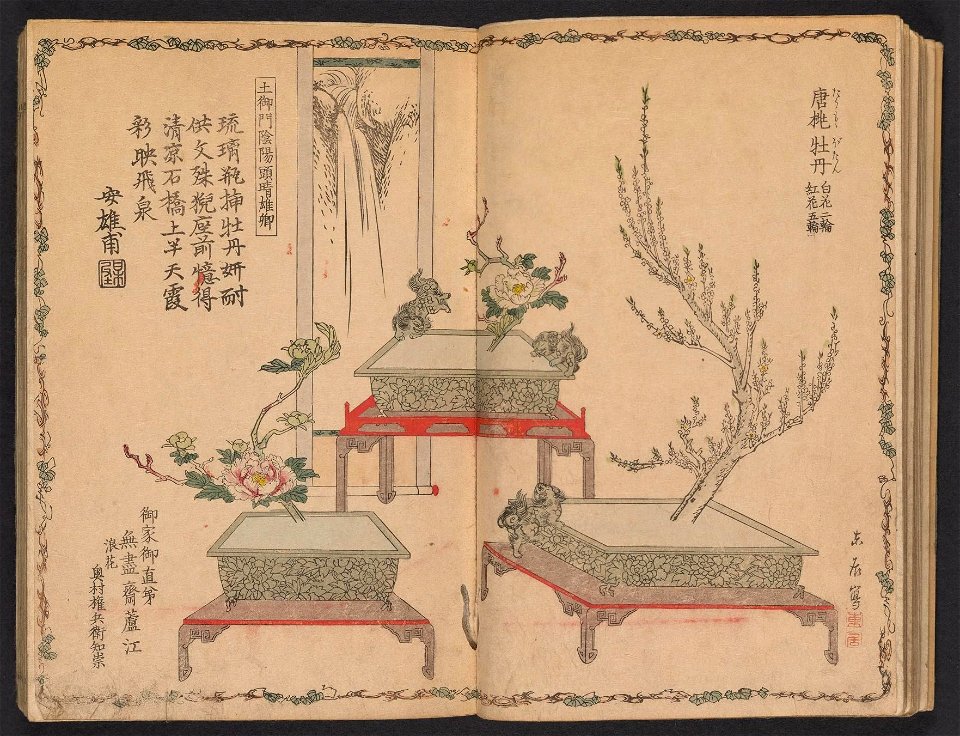 唐桃 牡丹
たうもゝ ぼたん
白花二輪
紅花五輪
東居寫
東居
土御門陰陽頭晴雄卿
琉璃瓶挿牡丹妍耐
供文殊猊座前憶得
清凉石橋上半天霞
彩映飛泉
安雄甫
御家御直弟
無盡齋蘆江
浪花
奥村権兵衛知崇